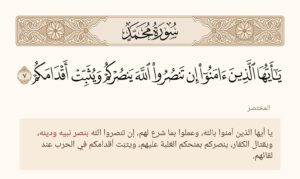 سُورَةُ مُحَمَّدٍ
يَٰٓأَيُّهَا ٱلَّذِينَ ءَامَنُوٓا۟ إِن تَنصُرُوا۟ ٱللَّهَ يَنصُرْكُمْ وَيُثَبِّتْ أَقْدَامَكُمْ ٧
المختصر
يا أيها الذين آمنوا بالله، وعملوا بما شرع لهم، إن تنصروا الله بنصر نبيه ودينه،
وبقتال الكفار، ينصركم بمنحكم الغلبة عليهم، ويثبت أقدامكم في الحرب عند
لقائهم.